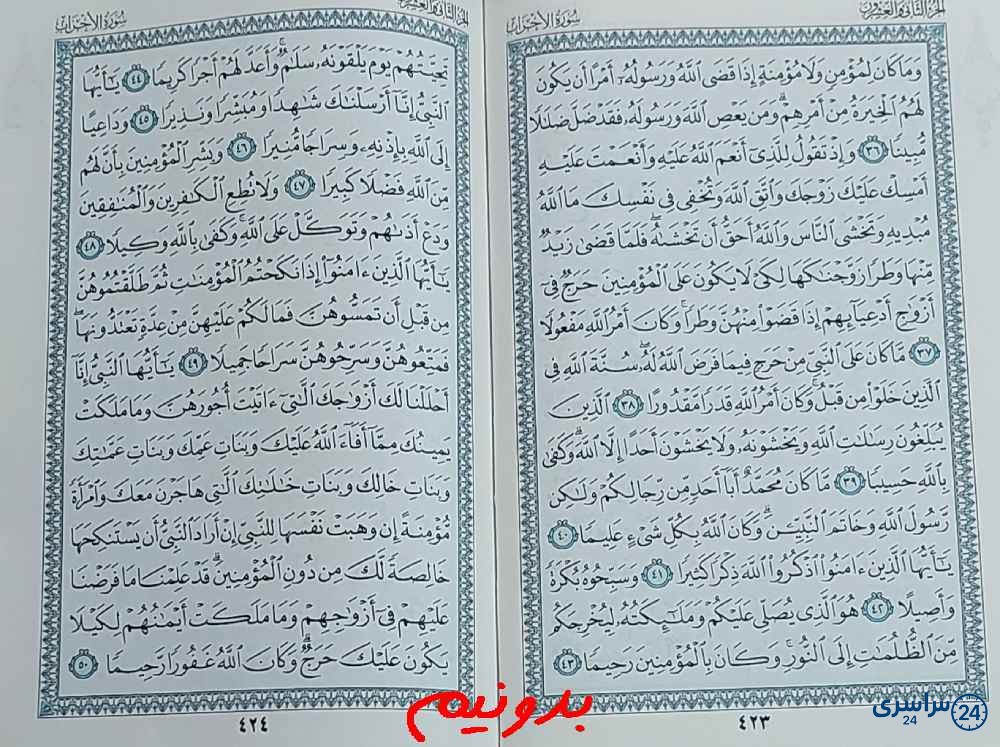 الجزء الثاني والعشرون
سورة الأحزاب
وَمَا كَانَ لِمُؤْمِنٍ وَلَا مُؤْمِنَةٍ إِذَا قَضَى ٱللَّهُ وَرَسُولُهُۥٓ أَمْرًا أَن يَكُونَ
لَهُمُ ٱلْخِيَرَةُ مِنْ أَمْرِهِمْ ۗ وَمَن يَعْصِ ٱللَّهَ وَرَسُولَهُۥ فَقَدْ ضَلَّ ضَلَٰلًا
مُّبِينًا ٣٦ وَإِذْ تَقُولُ لِلَّذِىٓ أَنْعَمَ ٱللَّهُ عَلَيْهِ وَأَنْعَمْتَ عَلَيْهِ
أَمْسِكْ عَلَيْكَ زَوْجَكَ وَٱتَّقِ ٱللَّهَ وَتُخْفِى فِى نَفْسِكَ مَا ٱللَّهُ
مُبْدِيهِ وَتَخْشَى ٱلنَّاسَ وَٱللَّهُ أَحَقُّ أَن تَخْشَىٰهُ ۖ فَلَمَّا قَضَىٰ زَيْدٌ
مِّنْهَا وَطَرًا زَوَّجْنَٰكَهَا لِكَىْ لَا يَكُونَ عَلَى ٱلْمُؤْمِنِينَ حَرَجٌ فِىٓ
أَزْوَٰجِ أَدْعِيَآئِهِمْ إِذَا قَضَوْا۟ مِنْهُنَّ وَطَرًا ۚ وَكَانَ أَمْرُ ٱللَّهِ مَفْعُولًا
٣٧ مَّا كَانَ عَلَى ٱلنَّبِىِّ مِنْ حَرَجٍ فِيمَا فَرَضَ ٱللَّهُ لَهُۥ ۖ سُنَّةَ ٱللَّهِ فِى
ٱلَّذِينَ خَلَوْا۟ مِن قَبْلُ ۚ وَكَانَ أَمْرُ ٱللَّهِ قَدَرًا مَّقْدُورًا ٣٨ ٱلَّذِينَ
يُبَلِّغُونَ رِسَٰلَٰتِ ٱللَّهِ وَيَخْشَوْنَهُۥ وَلَا يَخْشَوْنَ أَحَدًا إِلَّا ٱللَّهَ ۗ وَكَفَىٰ
بِٱللَّهِ حَسِيبًا ٣٩ مَّا كَانَ مُحَمَّدٌ أَبَآ أَحَدٍ مِّن رِّجَالِكُمْ وَلَٰكِن
رَّسُولَ ٱللَّهِ وَخَاتَمَ ٱلنَّبِيِّۦنَ ۗ وَكَانَ ٱللَّهُ بِكُلِّ شَىْءٍ عَلِيمًا ٤٠
يَٰٓأَيُّهَا ٱلَّذِينَ ءَامَنُوا۟ ٱذْكُرُوا۟ ٱللَّهَ ذِكْرًا كَثِيرًا ٤١ وَسَبِّحُوهُ بُكْرَةً
وَأَصِيلًا ٤٢ هُوَ ٱلَّذِى يُصَلِّى عَلَيْكُمْ وَمَلَٰٓئِكَتُهُۥ لِيُخْرِجَكُم
مِّنَ ٱلظُّلُمَٰتِ إِلَى ٱلنُّورِ ۚ وَكَانَ بِٱلْمُؤْمِنِينَ رَحِيمًا ٤٣
٤٢٣
الجزء الثاني والعشرون
سورة الأحزاب
تَحِيَّتُهُمْ يَوْمَ يَلْقَوْنَهُۥ سَلَٰمٌ ۚ وَأَعَدَّ لَهُمْ أَجْرًا كَرِيمًا ٤٤ يَٰٓأَيُّهَا
ٱلنَّبِىُّ إِنَّآ أَرْسَلْنَٰكَ شَٰهِدًا وَمُبَشِّرًا وَنَذِيرًا ٤٥ وَدَاعِيًا
إِلَى ٱللَّهِ بِإِذْنِهِۦ وَسِرَاجًا مُّنِيرًا ٤٦ وَبَشِّرِ ٱلْمُؤْمِنِينَ بِأَنَّ لَهُم
مِّنَ ٱللَّهِ فَضْلًا كَبِيرًا ٤٧ وَلَا تُطِعِ ٱلْكَٰفِرِينَ وَٱلْمُنَٰفِقِينَ
وَدَعْ أَذَىٰهُمْ وَتَوَكَّلْ عَلَى ٱللَّهِ ۚ وَكَفَىٰ بِٱللَّهِ وَكِيلًا ٤٨
يَٰٓأَيُّهَا ٱلَّذِينَ ءَامَنُوٓا۟ إِذَا نَكَحْتُمُ ٱلْمُؤْمِنَٰتِ ثُمَّ طَلَّقْتُمُوهُنَّ
مِن قَبْلِ أَن تَمَسُّوهُنَّ فَمَا لَكُمْ عَلَيْهِنَّ مِنْ عِدَّةٍ تَعْتَدُّونَهَا ۖ
فَمَتِّعُوهُنَّ وَسَرِّحُوهُنَّ سَرَاحًا جَمِيلًا ٤٩ يَٰٓأَيُّهَا ٱلنَّبِىُّ إِنَّآ
أَحْلَلْنَا لَكَ أَزْوَٰجَكَ ٱلَّٰتِىٓ ءَاتَيْتَ أُجُورَهُنَّ وَمَا مَلَكَتْ
يَمِينُكَ مِمَّآ أَفَآءَ ٱللَّهُ عَلَيْكَ وَبَنَاتِ عَمِّكَ وَبَنَاتِ عَمَّٰتِكَ
وَبَنَاتِ خَالِكَ وَبَنَاتِ خَٰلَٰتِكَ ٱلَّٰتِى هَاجَرْنَ مَعَكَ وَٱمْرَأَةً
مُّؤْمِنَةً إِن وَهَبَتْ نَفْسَهَا لِلنَّبِىِّ إِنْ أَرَادَ ٱلنَّبِىُّ أَن يَسْتَنكِحَهَا
خَالِصَةً لَّكَ مِن دُونِ ٱلْمُؤْمِنِينَ ۗ قَدْ عَلِمْنَا مَا فَرَضْنَا
عَلَيْهِمْ فِىٓ أَزْوَٰجِهِمْ وَمَا مَلَكَتْ أَيْمَٰنُهُمْ لِكَيْلَا
يَكُونَ عَلَيْكَ حَرَجٌ ۗ وَكَانَ ٱللَّهُ غَفُورًا رَّحِيمًا ٥٠
٤٢٤
بدونیم
سراسری 24
24